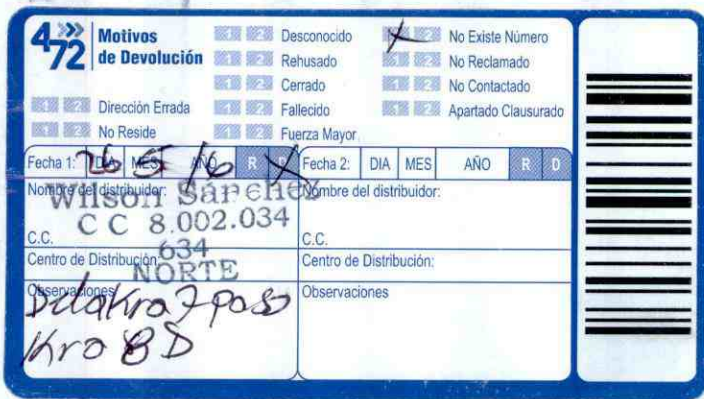 472 Motivos de Devolución
1 2 Desconocido
1 2 Rehusado
1 2 Cerrado
1 2 Fallecido
1 2 Fuerza Mayor
1 2 No Existe Número
1 2 No Reclamado
1 2 No Contactado
1 2 Apartado Clausurado
1 2 Dirección Errada
1 2 No Reside
Fecha 1: DIA MES AÑO R D
26 5 16 X
Nombre del distribuidor:
Wilson Sánchez
C.C.
C C 8.002.034
Centro de Distribución:
634
NORTE
Observaciones
Kra 7 paso
Kra 8D
Fecha 2: DIA MES AÑO R D
Nombre del distribuidor:
C.C.
Centro de Distribución:
Observaciones